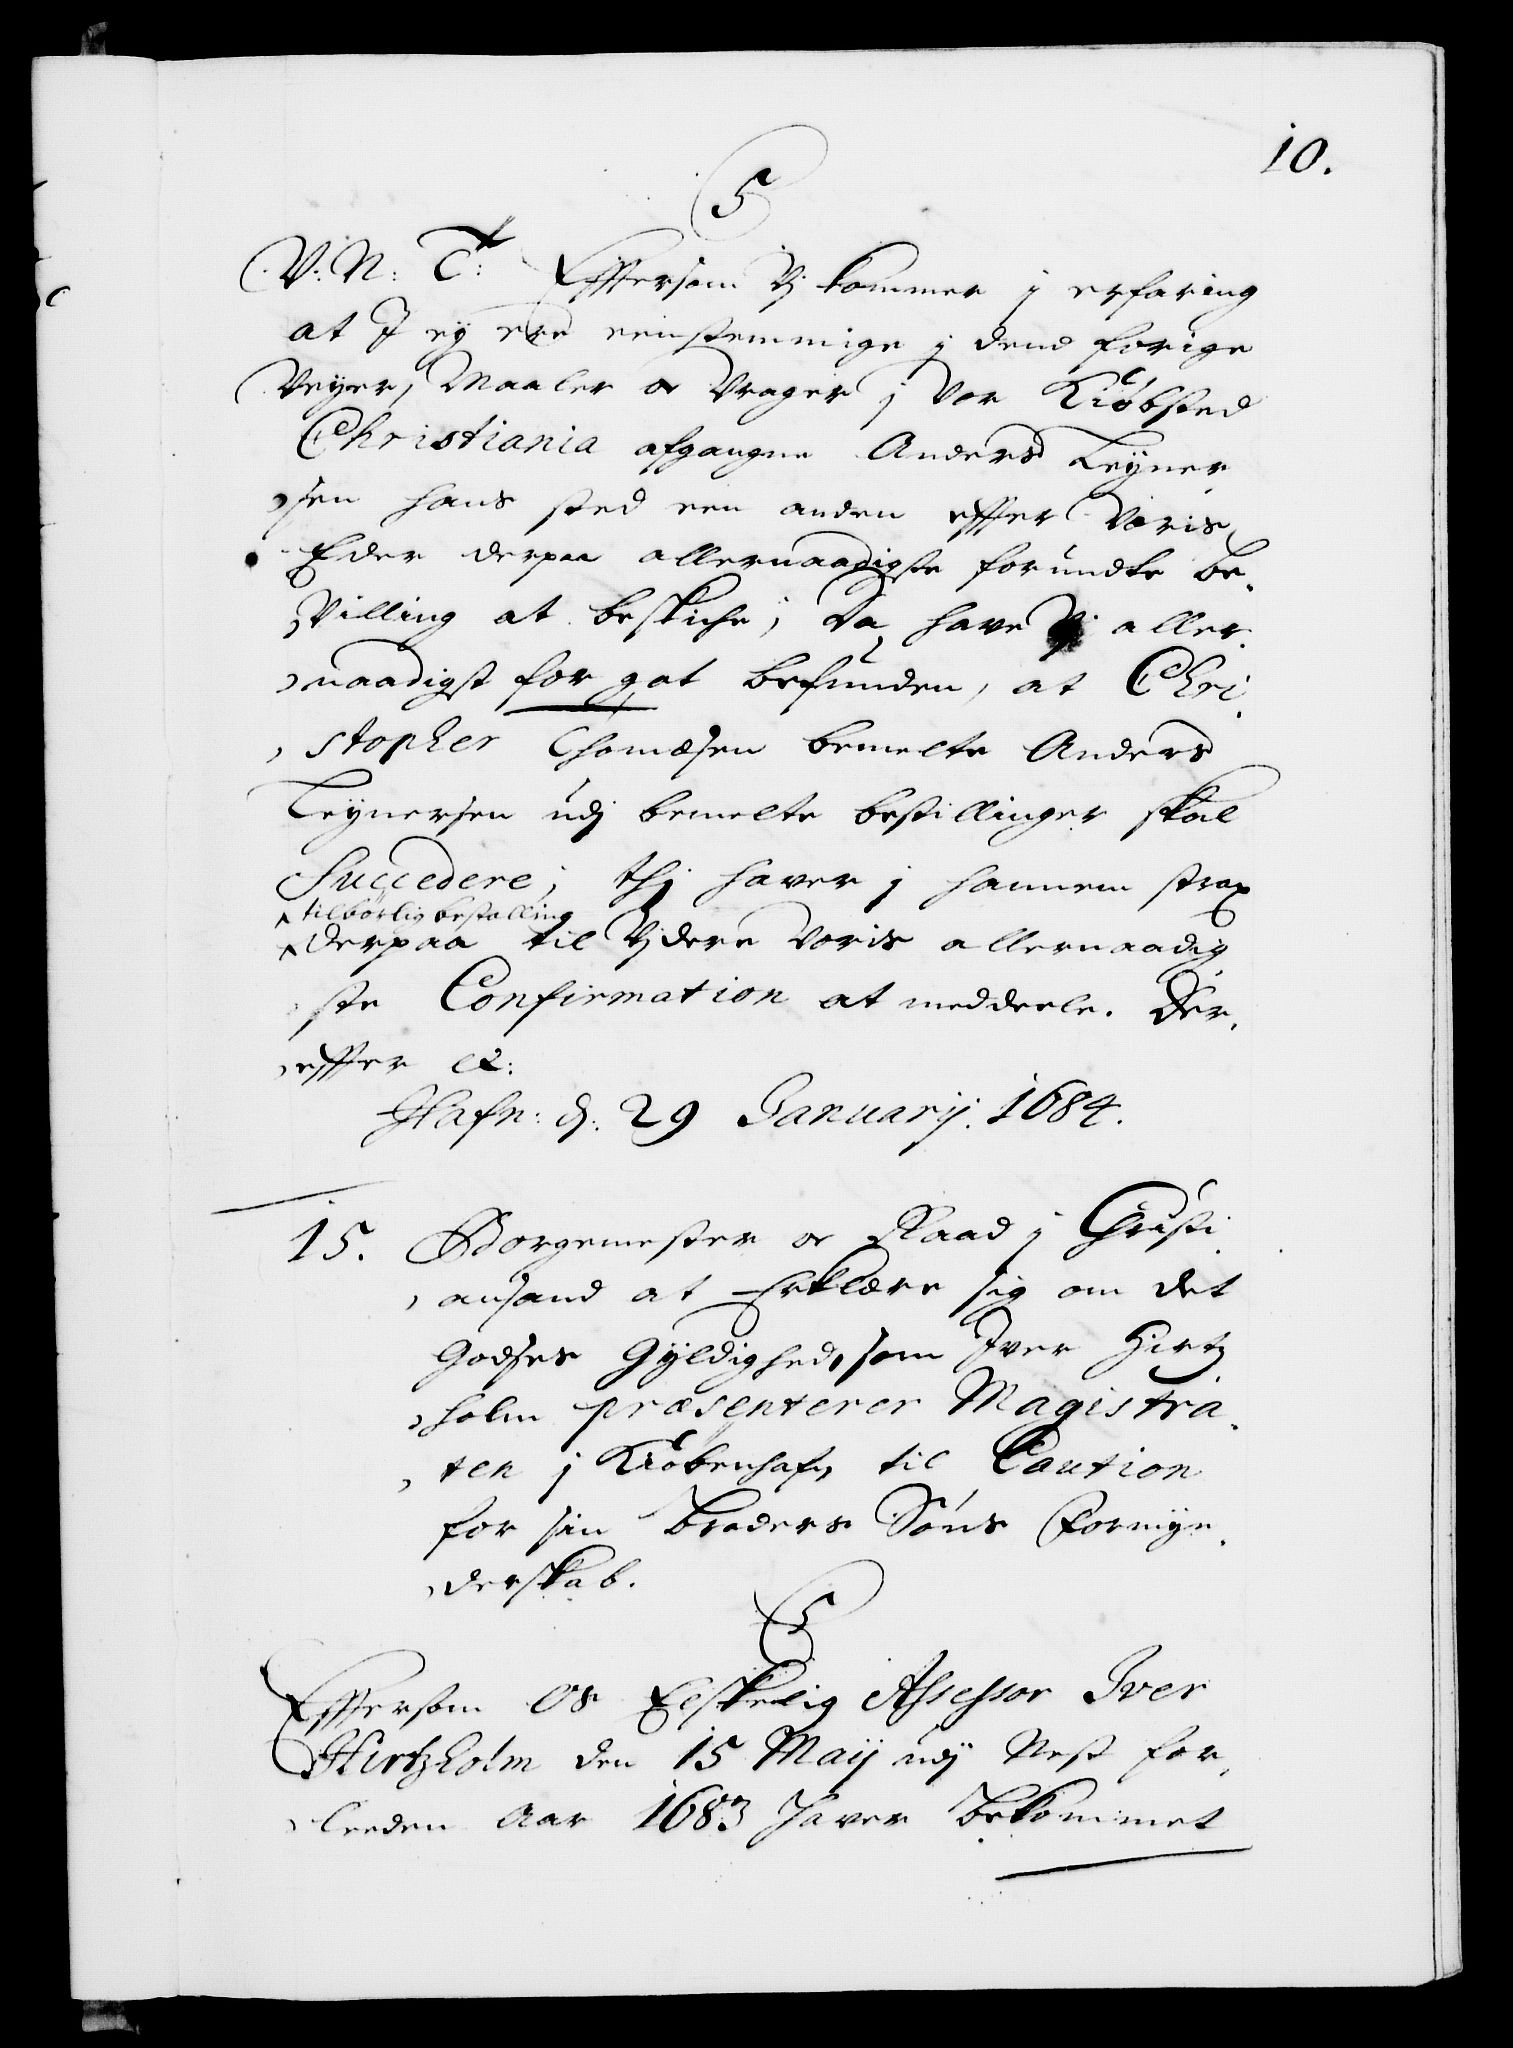 10.
5
V: N: T: Effersom Vj kommer j erfaring
at I ey ere eenstemmige j dend forige
Veyer, Maaler oc Vrager j Vor Kiøbsted
Christiania afgangne Anders Leyner,
sen hans sted een anden effter Voris
Eder derpaa allernaadigste forundte be,
villing at beskiche; Da have Vj aller,
naadigst for got befunden, at Chri,
stopher Thomæsen bemelte Anders
Leynersen udj bemelte bestillinger skal
Succedere; thj haver j hannem strax
tilbørlig bestalling
derpaa til Vjdere Voris allernaadig
ste Confirmation at meddeele. Der,
effter etc:
Hafn: d: 29 Januarij. 1684.
15. Borgemester oc Raad j Christi
ansand at Erklære sig om det
Godses Gyldighed, som Iver Hirtz
holm præsenterer Magistra,
ten j Kiøbenhafn til Caution
for sin Broders Søns Formyn,
derskab.
5
Effersom Os Elskelig Assessor Iver
Hirtzholm den 15 Maij udj Nest for,
leeden Aar 1683 haver bekommet